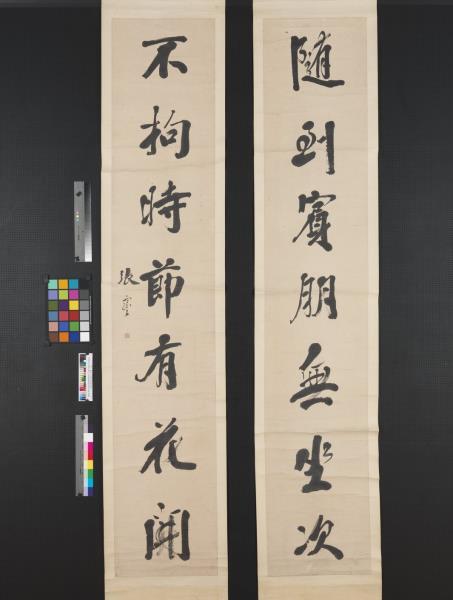 隨到賓朋無坐次
不拘時節有花開
張